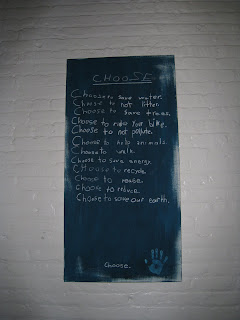 CHOOSE
Choose to save water.
Choose to not litter.
Choose to save trees.
Choose to ride your bike.
Choose to not pollute.
Choose to help animals
Choose to walk.
Choose to save energy.
Choose to recycle.
Choose to reuse.
Choose to reduce.
Choose to save our earth.
Choose.